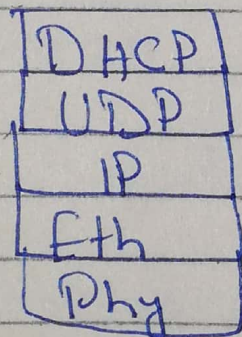 DHCP
UDP
IP
Eth
Phy